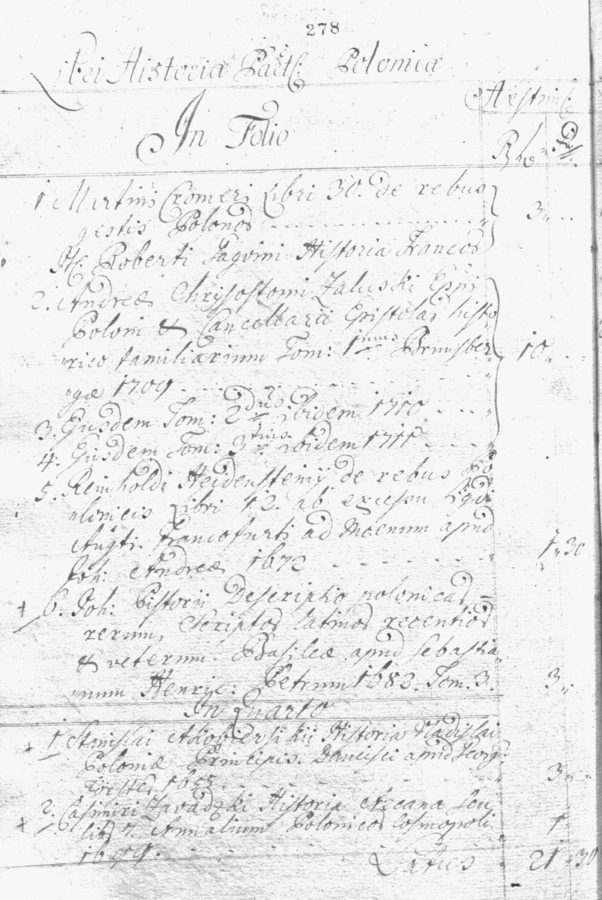 278
Libri Historiæ Polonicæ
In Folio
1. Martini Cromeri Libri 30. de rebus
gestis Polonor
3
Roberti Gagvini Historia Francor
2. Andreæ Chrysostomi Zaluski Eppi
Poloni & Cancellarii Epistolar histo
rico familiarium Tom: 1mus Brunsber
10
gæ 1709
3. Ejusdem Tom: 2dus ibidem 1710
4. Ejusdem Tom: 3tius ibidem 1711
5. Reinholdi Heidensteinij de rebus Po
lonicis Libri 12. ab excessu Sigis
Augti. Francofurti ad Moenum apud
1 30
Joh: Andreæ 1672
+ 6. Joh: Pistorii Descriptio polonicar =
rerum, Scriptor latinor recentior
& veterum. Basileæ apud Sebastia
num Henric: Petrum 1582. Tom. 3.
3
In Quarto
+ 1. Stanislai Historia Vladislai
Poloniæ Principis. Dantisci apud Georg
3
+ 2. Casimiri Zavadzki Historia Arcana seu
Annalium Polonicor Cosmopoli
1
1699.
Latus 21 30